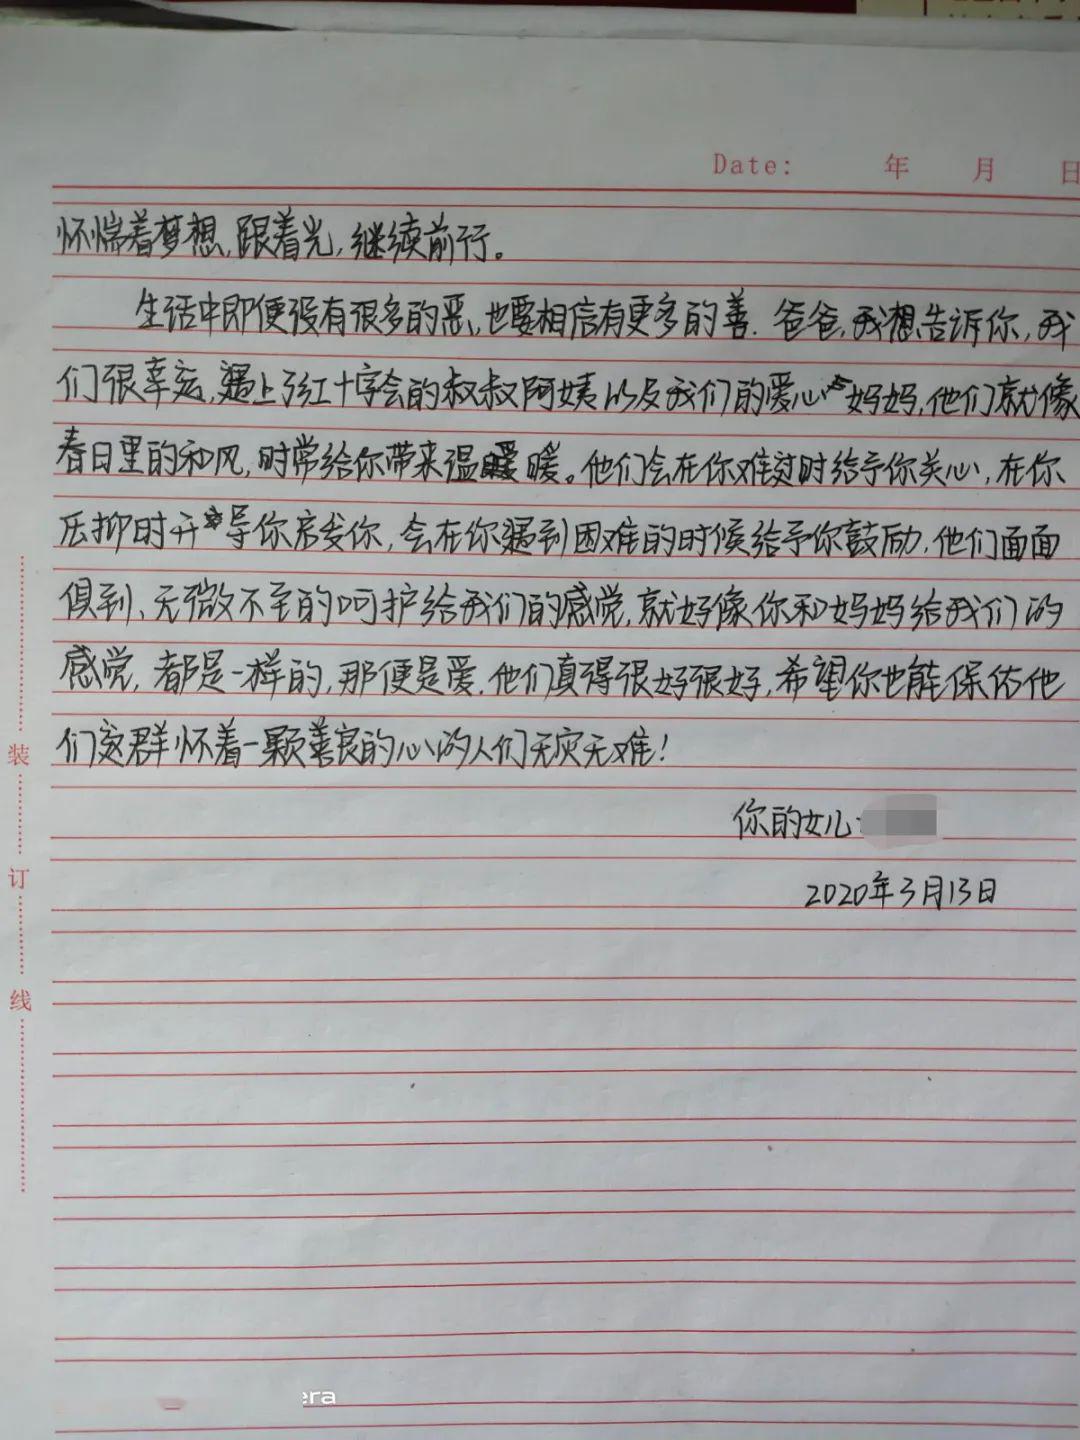 Date: 年 月 日
怀惴着梦想,跟着光,继续前行。
生活中即便没有很多的恶,也要相信有更多的善.爸爸,我想告诉你,我
们很幸运,遇上了红十字会的叔叔阿姨以及我们的爱心妈妈,他们就像
春日里的和风,时常给你带来温暖。他们会在你难过时给予你关心,在你
压抑时开导你启发你,会在你遇到困难的时候给予你鼓励,他们面面
俱到、无微不至的呵护给我们的感觉,就好像你和妈妈给我们的
感觉,都是一样的,那便是爱.他们真得很好很好,希望你也能保佑他
们这群怀着一颗善良的心的人们无灾无难!
你的女儿:
2020年3月13日
装
订
线
era